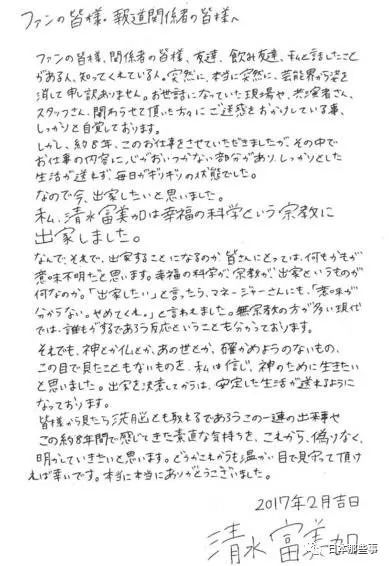 ファンの皆様。報道関係者の皆様へ
ファンの皆様、関係者の皆様、友達、飲み友達、私と話したこと
がある人、知ってくれている人。突然に、本当に突然に、芸能界から姿を
消して申訳ありません。お世話になっていた現場や、共演者さん、
スタッフさん、関わらせて頂いた方々にご迷惑をおかけしている事、
しっかりと自覚しております。
しかし、約8年、このお仕事をさせていただきましたが、その中で
お仕事の内容に、心がおいつかない部分があり、しっかりとした
生活が送れず、毎日がギリギリの状態でした。
なので今、出家したいと思いました。
私、清水富美加は幸福の科学という宗教に
出家しました。
なんで、それで、出家することになるのか、皆さんにとっては、何もかもが
意味不明だと思います。幸福の科学が、宗教が、出家というものが
何なのか。「出家したい」と言ったら、マネージャーさんにも、「意味が
分からない。やめてくれ。」と言われました。無宗教の方が多い現代
では、誰もがするであろう反応ということも分かっております。
それでも、神とか仏とか、あの世とか、確かめようのないもの、
この目で見たこともないものを、私は信じ、神のために生きたい
と思いました。出家を決意してからは、安定した生活が送れるように
なっております。
皆様から見たら洗脳とも取れるであろうこの一連の出来事や
この約8年間で感じてきた素直な気持ちを、これから、偽りなく、
明かしていきたいと思います。どうかこれからも温かい目で見守って頂け
れば幸いです。本当に本当にありがとうございました。
2017年2月吉日
清水富美加
日本那些事